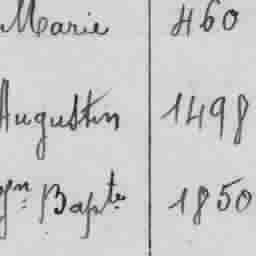 Marie 460
Augustin 1498
Jn Bapte 1850